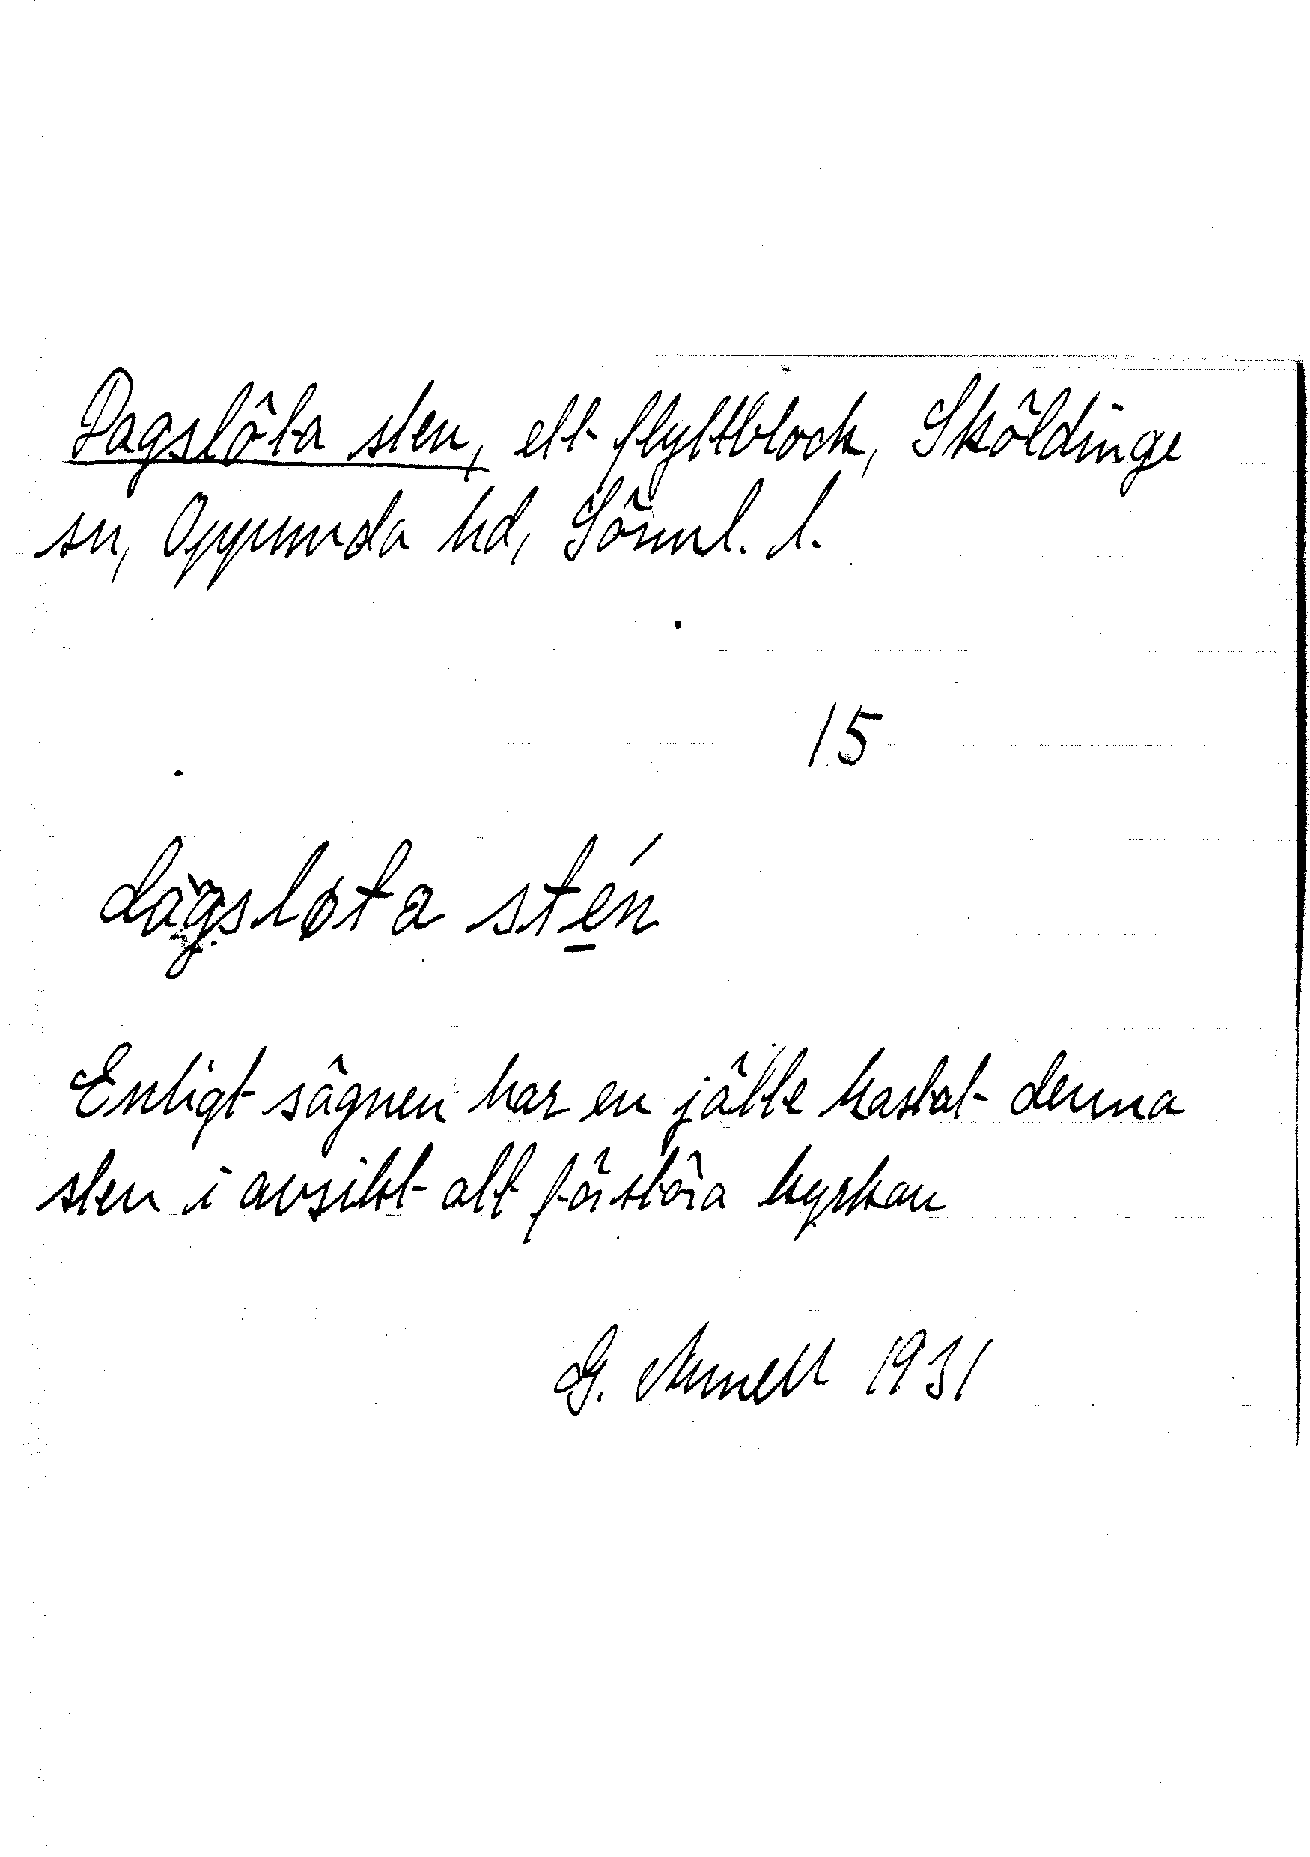 Dagslöta sten, ett flyttblock, Sköldinge
sn, Oppunda hd, Sörml. l.
15
dàgsløta stén
Enligt sägnen har en jätte kastat denna
sten i avsikt att förstöra kyrkan
G. 1931